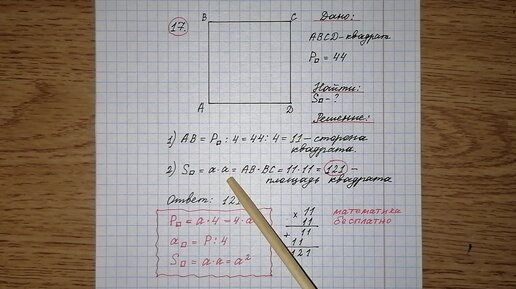 17.
B C
A D
Дано:
ABCD-квадрат
P□ = 44
Найти:
S□ - ?
Решение:
1) AB = P□ : 4 = 44 : 4 = 11 - сторона
квадрата.
2) S□ = a·a = AB·BC = 11·11 = 121 -
площадь квадрата
Ответ: 12
P□ = a·4 = 4·a
a□ = P:4
S□ = a·a = a²
× 11
11
+ 11
11
121
математика
бесплатно